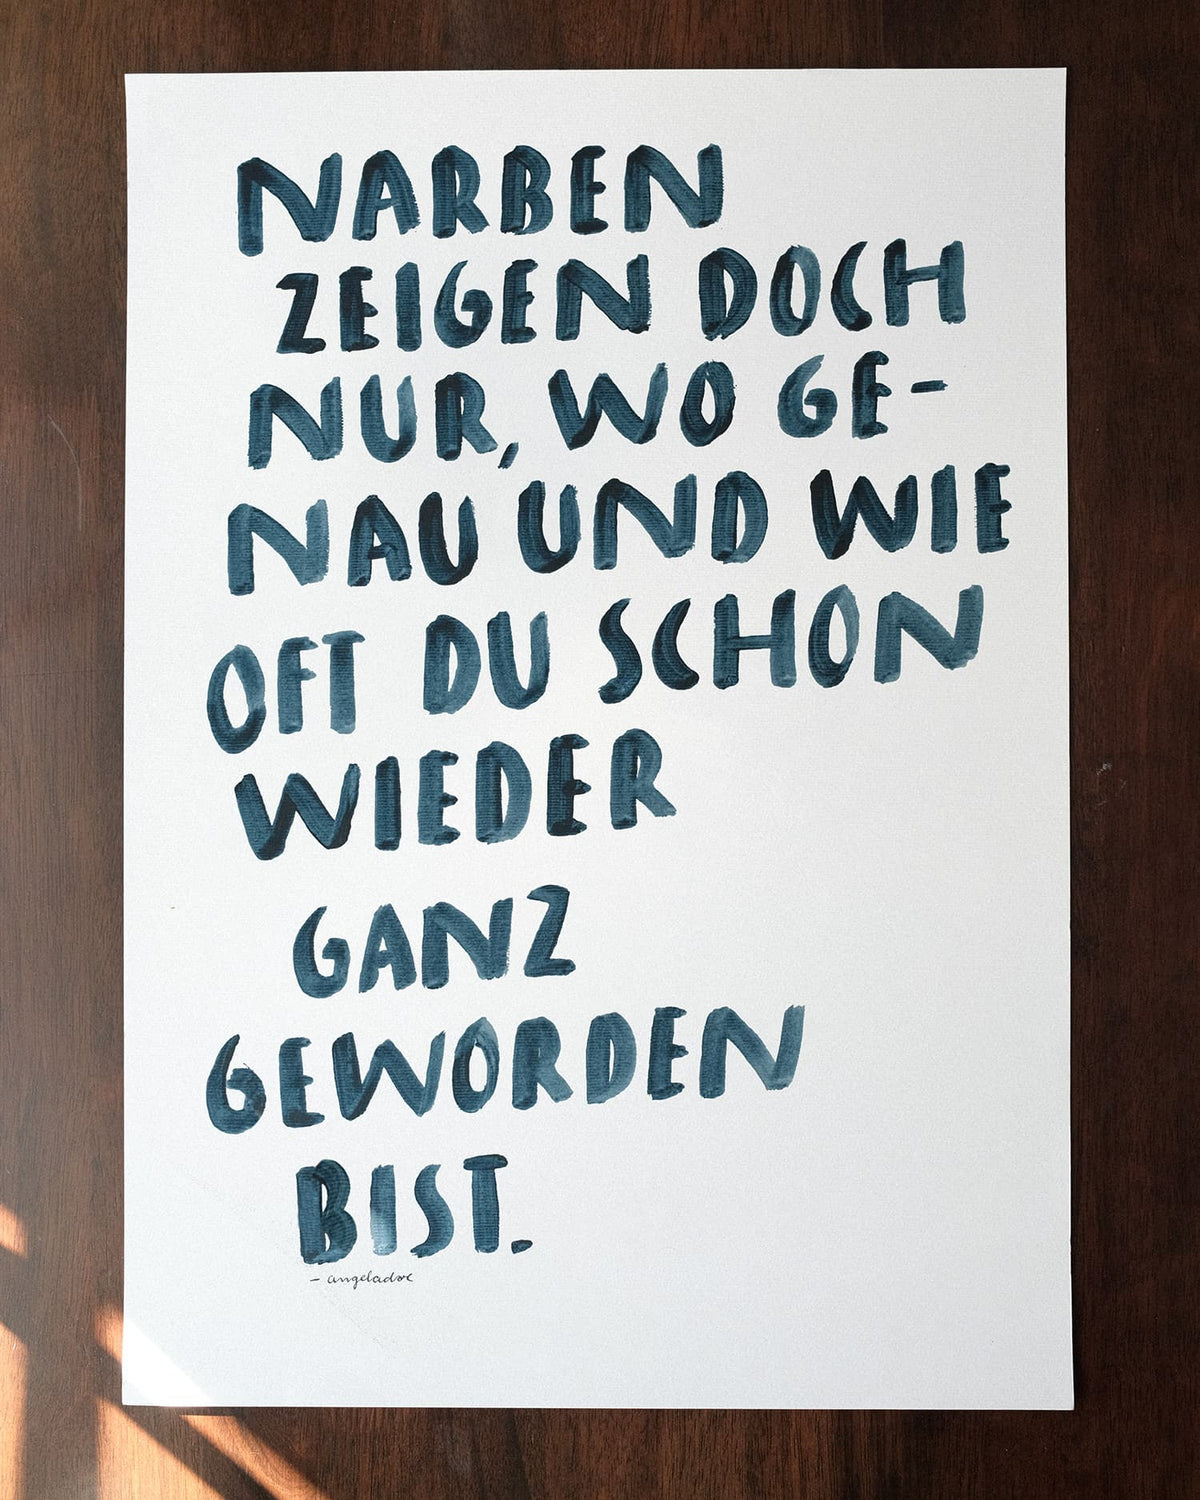 NARBEN
ZEIGEN DOCH
NUR, WO GE-
NAU UND WIE
OFT DU SCHON
WIEDER
GANZ
GEWORDEN
BIST.
– angeladoe